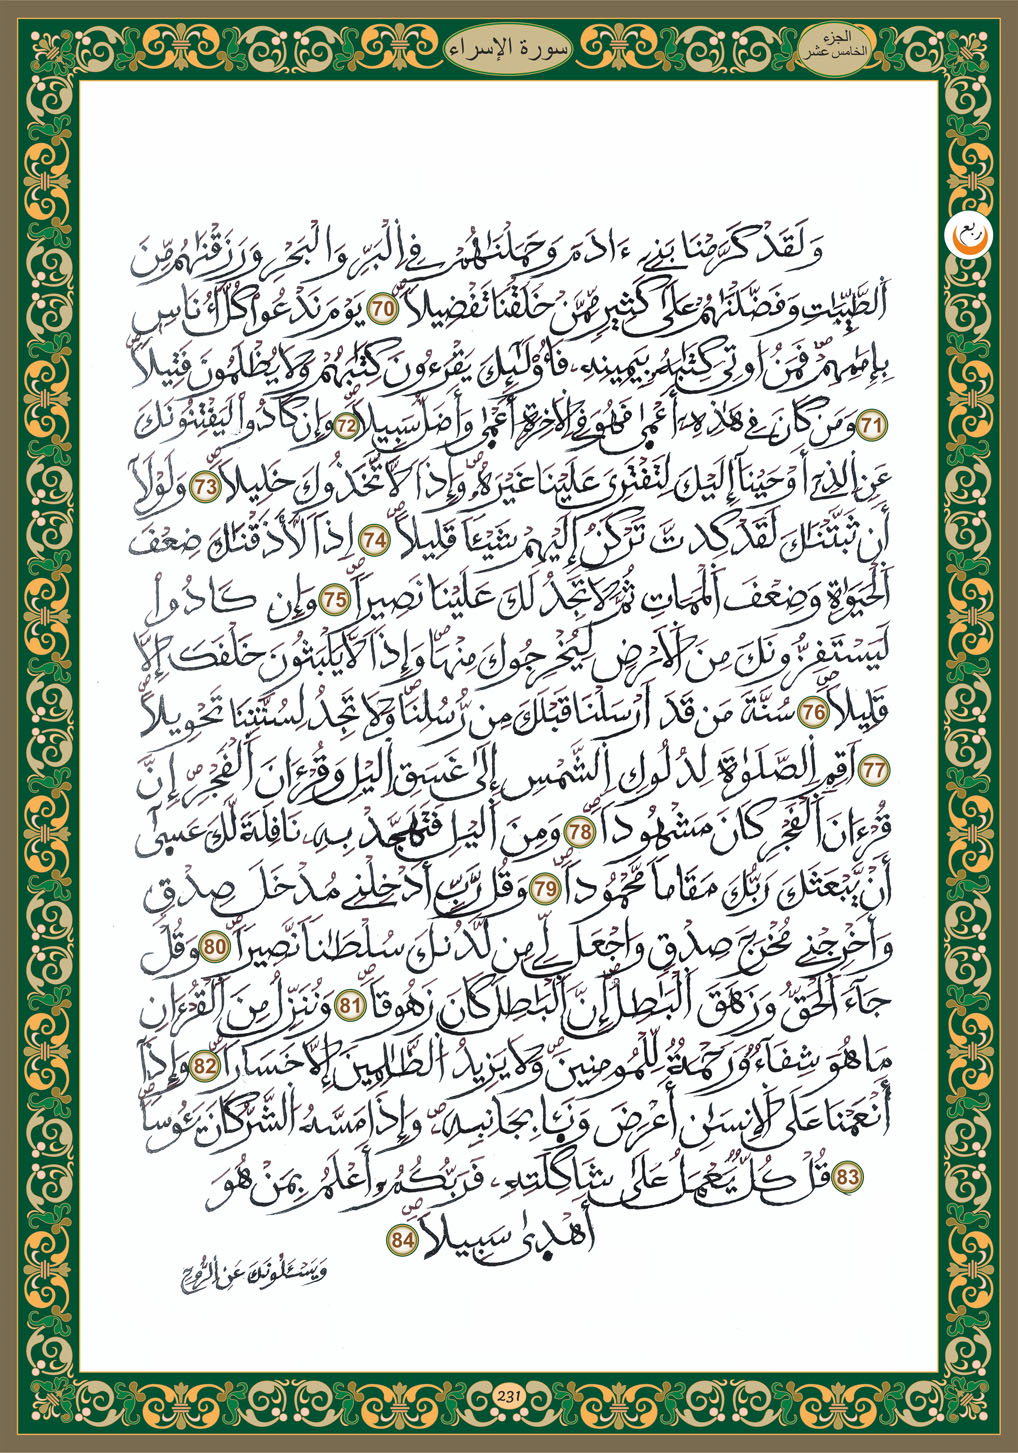 سورة الإسراء
الجزء
الخامس عشر
ربع
وَلَقَدْ كَرَّمْنَا بَنِےٓ ءَادَمَ وَحَمَلْنَٰهُمْ فِے اِ۬لْبَرِّ وَالْبَحْرِ وَرَزَقْنَٰهُم مِّنَ
اَ۬لطَّيِّبَٰتِ وَفَضَّلْنَٰهُمْ عَلَىٰ كَثِيرٖ مِّمَّنْ خَلَقْنَا تَفْضِيلاٗۖ 70 يَوْمَ نَدْعُواْ كُلَّ أُنَاسِۢ
بِإِمَٰمِهِمْۖ فَمَنُ ا۟وتِيَ كِتَٰبَهُۥ بِيَمِينِهِۦ فَأُوْلَٰٓئِكَ يَقْرَءُونَ كِتَٰبَهُمْ وَلَا يُظْلَمُونَ فَتِيلاٗۖ
71 وَمَن كَانَ فِے هَٰذِهِۦٓ أَعْمَىٰ فَهُوَ فِے اِ۬لَاخِرَةِ أَعْمَىٰ وَأَضَلُّ سَبِيلاٗۖ 72 وَإِن كَادُواْ لَيَفْتِنُونَكَ
عَنِ اِ۬لذِےٓ أَوْحَيْنَآ إِلَيْكَ لِتَفْتَرِيَ عَلَيْنَا غَيْرَهُۥۖ وَإِذاٗ لَّاتَّخَذُوكَ خَلِيلاٗۖ 73 وَلَوْلَآ
أَن ثَبَّتْنَٰكَ لَقَدْ كِدتَّ تَرْكَنُ إِلَيْهِمْ شَيْـٔاٗ قَلِيلاًۖ 74 اِذاٗ لَّأَذَقْنَٰكَ ضِعْفَ
اَ۬لْحَيَوٰةِ وَضِعْفَ اَ۬لْمَمَاتِ ثُمَّ لَا تَجِدُ لَكَ عَلَيْنَا نَصِيراٗۖ 75 وَإِن كَادُواْ
لَيَسْتَفِزُّونَكَ مِنَ اَ۬لَارْضِ لِيُخْرِجُوكَ مِنْهَاۖ وَإِذاٗ لَّا يَلْبَثُونَ خَلْفَكَ إِلَّا
قَلِيلاٗۖ 76 سُنَّةَ مَن قَدَ اَرْسَلْنَا قَبْلَكَ مِن رُّسُلِنَاۖ وَلَا تَجِدُ لِسُنَّتِنَا تَحْوِيلاًۖ
77 اَقِمِ اِ۬لصَّلَوٰةَ لِدُلُوكِ اِ۬لشَّمْسِ إِلَىٰ غَسَقِ اِ۬ليْلِ وَقُرْءَانَ اَ۬لْفَجْرِۖ إِنَّ
قُرْءَانَ اَ۬لْفَجْرِ كَانَ مَشْهُوداٗۖ 78 وَمِنَ اَ۬ليْلِ فَتَهَجَّدْ بِهِۦ نَافِلَةٗ لَّكَ عَسَىٰٓ
أَنْ يَّبْعَثَكَ رَبُّكَ مَقَاماٗ مَّحْمُوداٗۖ 79 وَقُل رَّبِّ أَدْخِلْنِے مُدْخَلَ صِدْقٖ
وَأَخْرِجْنِے مُخْرَجَ صِدْقٖ وَاجْعَل لِّے مِن لَّدُنكَ سُلْطَٰناٗ نَّصِيراٗۖ 80 وَقُلْ
جَآءَ اَ۬لْحَقُّ وَزَهَقَ اَ۬لْبَٰطِلُۖ إِنَّ اَ۬لْبَٰطِلَ كَانَ زَهُوقاٗۖ 81 وَنُنَزِّلُ مِنَ اَ۬لْقُرْءَانِ
مَا هُوَ شِفَآءٞ وَرَحْمَةٞ لِّلْمُومِنِينَۖ وَلَا يَزِيدُ اُ۬لظَّٰلِمِينَ إِلَّا خَسَاراٗۖ 82 وَإِذَآ
أَنْعَمْنَا عَلَى اَ۬لِانسَٰنِ أَعْرَضَ وَنَـَٔا بِجَانِبِهِۦۖ وَإِذَا مَسَّهُ اُ۬لشَّرُّ كَانَ يَـُٔوساٗۖ
83 قُلْ كُلّٞ يَعْمَلُ عَلَىٰ شَاكِلَتِهِۦ فَرَبُّكُمُۥٓ أَعْلَمُ بِمَنْ هُوَ
أَهْدَىٰ سَبِيلاٗۖ 84
وَيَسْـَٔلُونَكَ عَنِ اِ۬لرُّوحِ
231